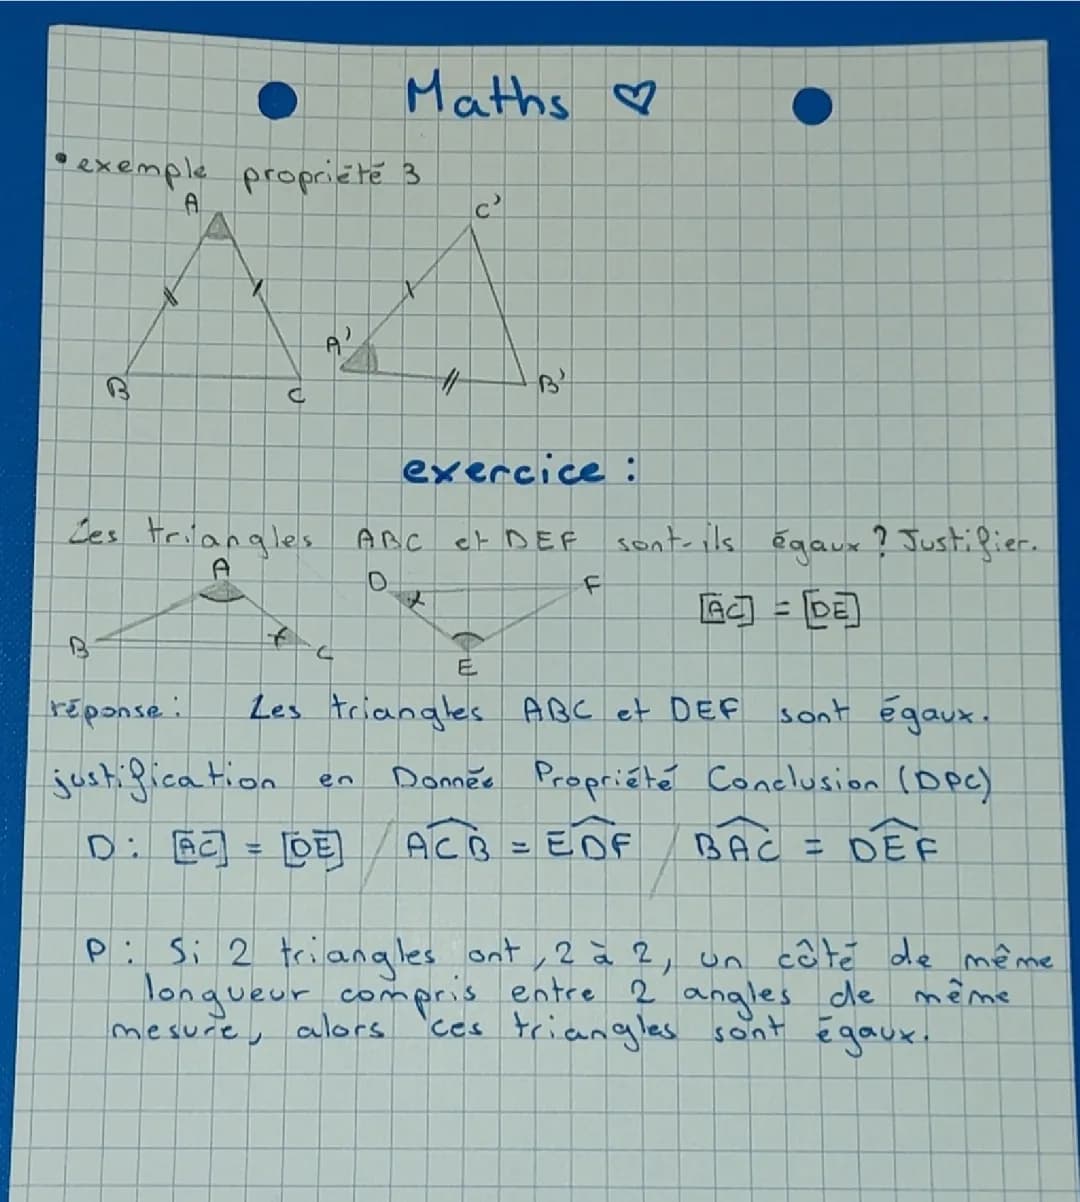 Maths ♡
• exemple propriété 3
A
C'
A'
B
C
B'
exercice :
Les triangles ABC et DEF sont-ils égaux ? Justifier.
A
D
F
[AC] = [DE]
B
C
E
réponse : Les triangles ABC et DEF sont égaux.
justification en Donnée Propriété Conclusion (DPC)
D : [AC] = [DE] / ACB = EDF / BAC = DEF
P : Si 2 triangles ont, 2 à 2, un côté de même
longueur compris entre 2 angles de même
mesure, alors ces triangles sont égaux.